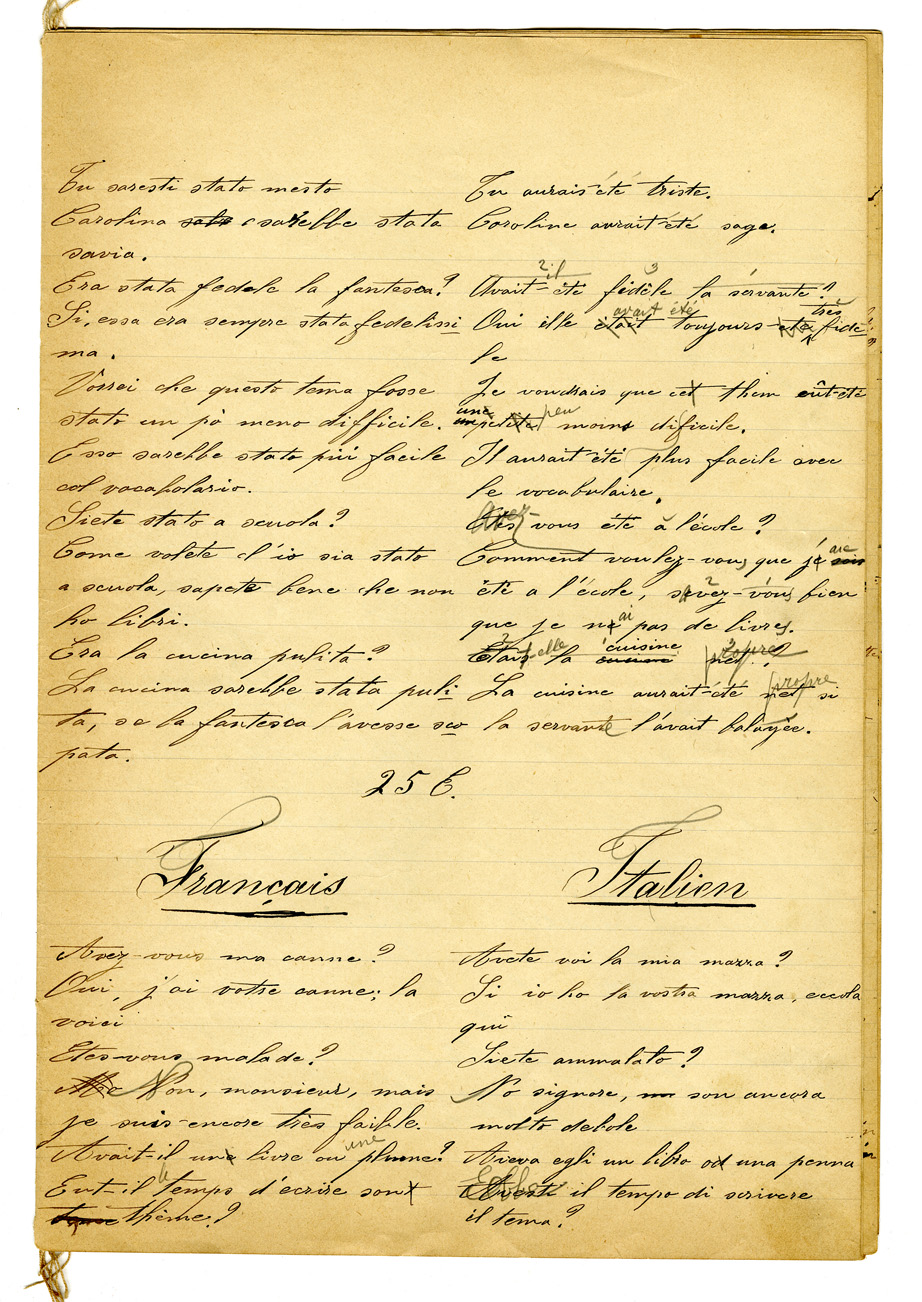 Tu saresti stato mesto
Carolina sarebbe stata
savia.
Era stata fedele la fantesca?
Si, essa era sempre stata fedelissi
ma.
Vorrei che questo tema fosse
stato un pò meno difficile.
Esso sarebbe stato piú facile
col vocabolario.
Siete stato a scuola?
Come volete ch'io sia stato
a scuola, sapete bene che non
ho libri.
Era la cucina pulita?
La cucina sarebbe stata puli
ta, se la fantesca l'avesse sco
pata.
Tu aurais été triste.
Caroline aurait été sage.
2 il 3
Avait-été fidèle la servante?
avait été très
Oui elle était toujours été fidè
le
Je voudrais que cet them eût-été
une peu
petite moins dificile.
Il aurait été plus facile avec
le vocabulaire.
Avez-
Etes-vous été à l'école?
aie
Comment voulez-vous que je sois
été a l'école, savez-vous bien
2
ai
que je n'ai pas de livres.
elle cuisine propre
Etais la net?
propre
La cuisine aurait-été net si
la servante l'avait balayée.
25 E.
Français
Avez-vous ma canne?
Oui, j'ai votre canne; la
voici
Etes-vous malade?
Non, monsieur, mais
je suis-encore très faible.
une
Avait-il une livre ou plume?
le
Eut-il temps d'écrire sont
thème?
Italien
Avete voi la mia mazza?
Si io ho la vostra mazza, eccola
qui
Siete ammalato?
No signore, son ancora
molto debole
Aveva egli un libro od una penna
Ebbe
Avesti il tempo di scrivere
il tema?